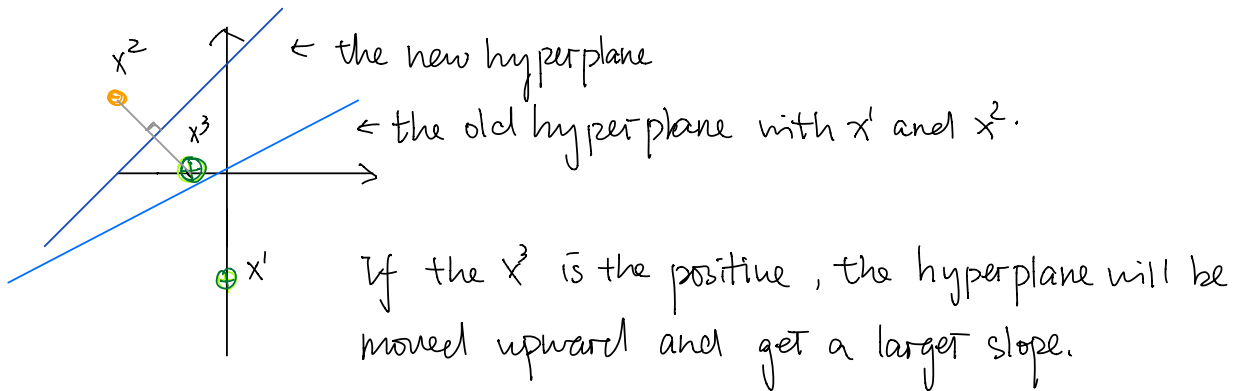 x²
← the new hyperplane
x³
← the old hyperplane with x¹ and x².
x¹
If the x³ is the positive, the hyperplane will be
moved upward and get a larger slope.